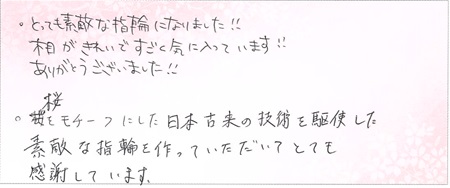 。とっても素敵な指輪になりました!!
木目がきれいですごく気に入っています!!
ありがとうございました!!
桜
。をモチーフにした日本古来の技術を駆使した
素敵な指輪を作っていただいてとても
感謝しています。